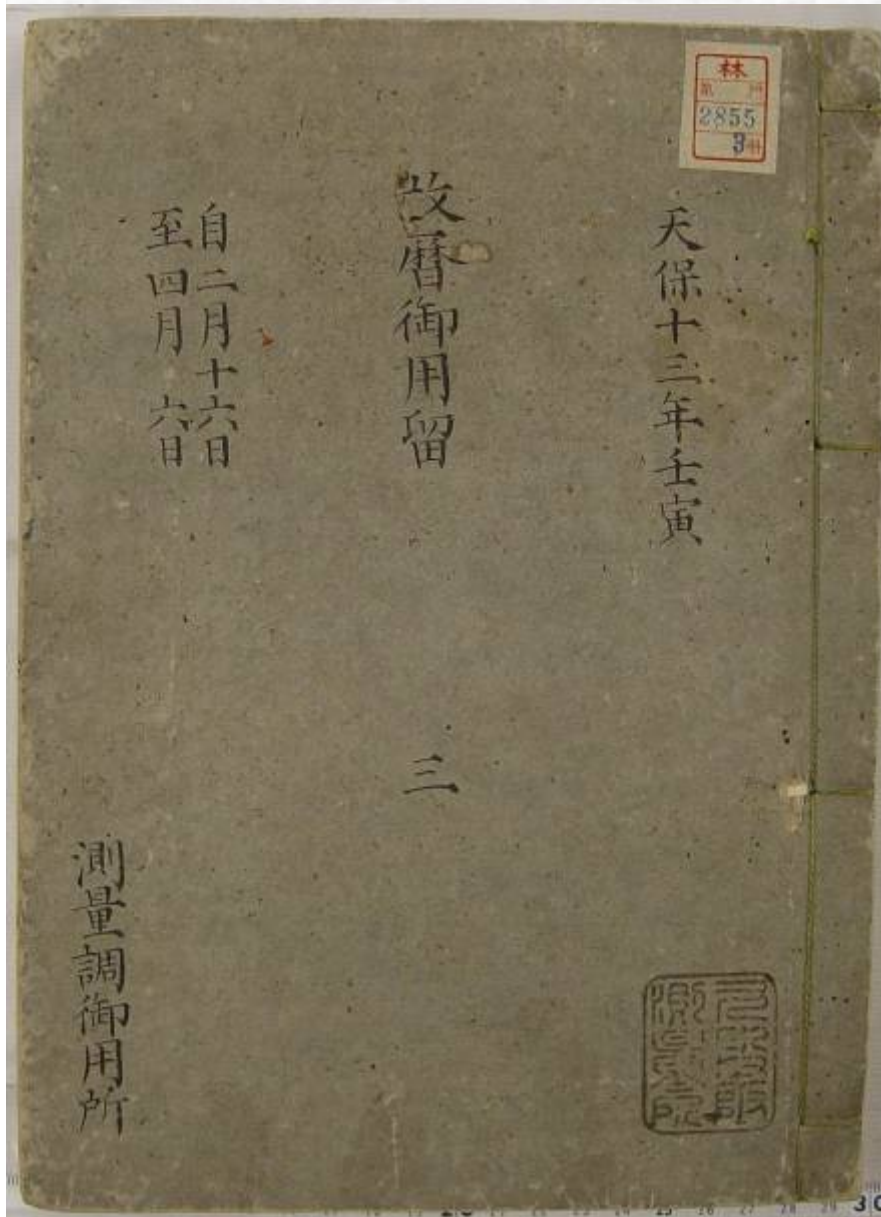 林
2855
3冊
天保十三年壬寅
改暦御用留
三
自二月十六日
至四月六日
測量調御用所